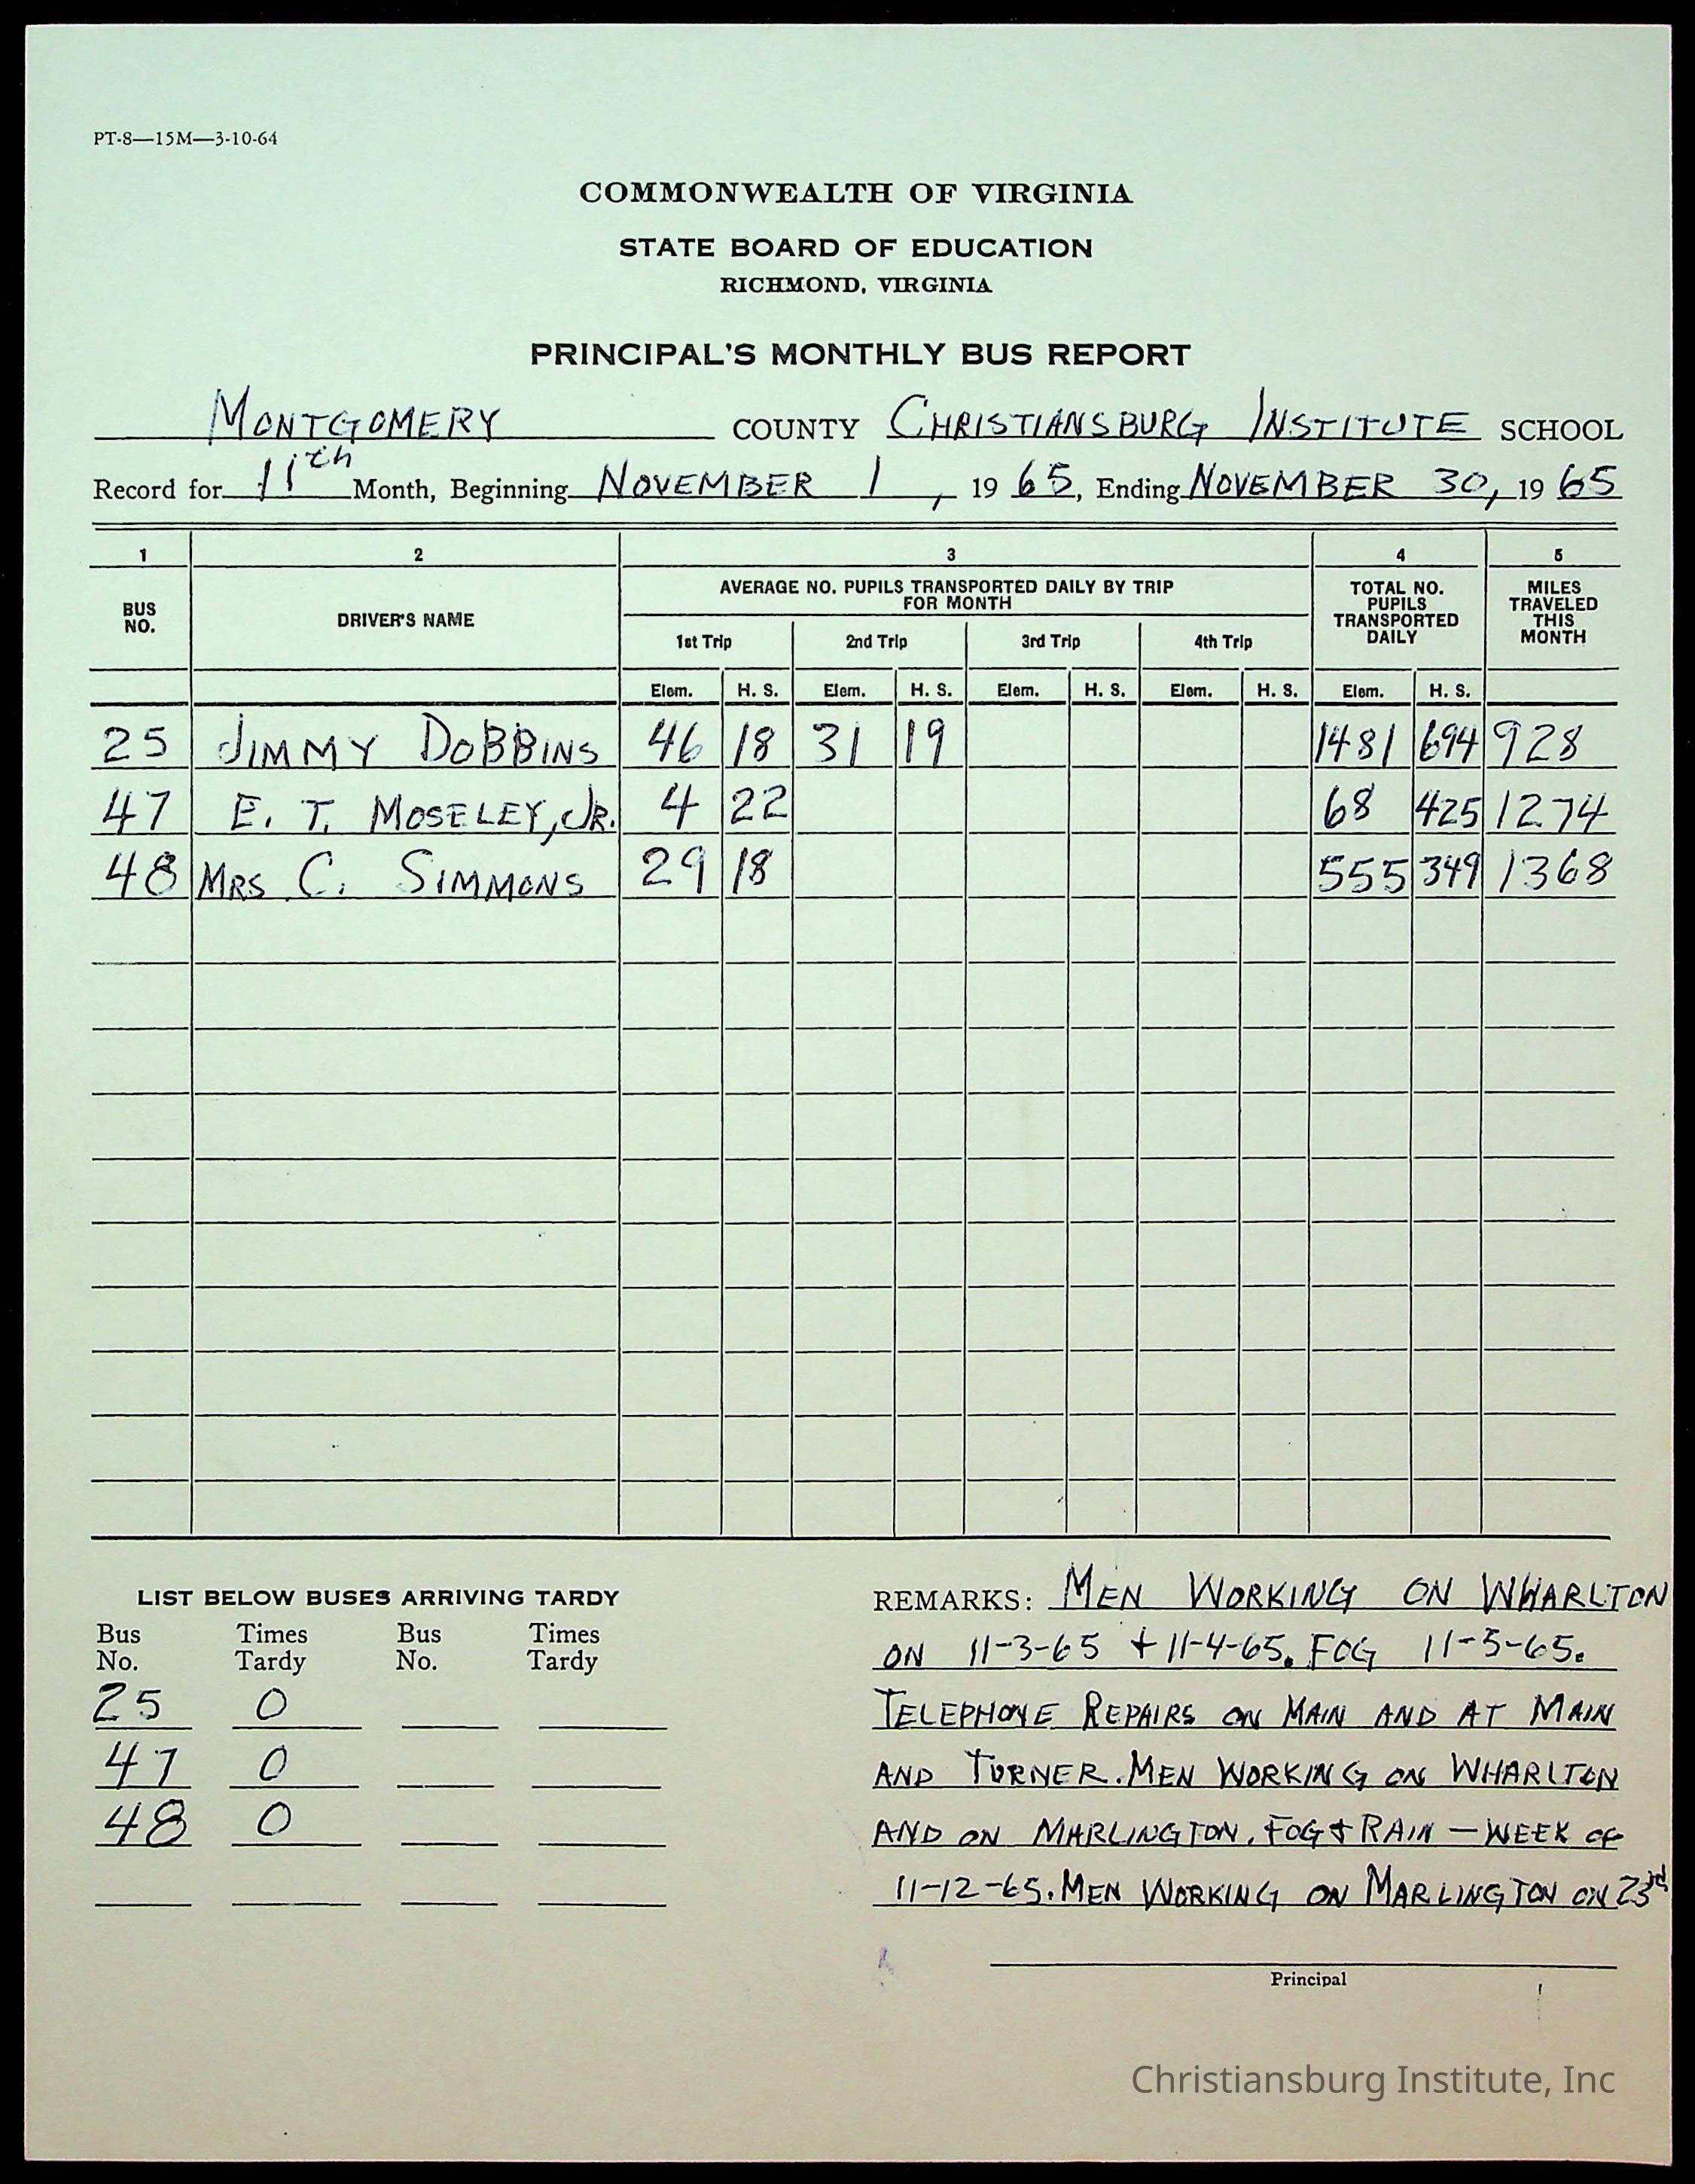 PT-8—15M—3-10-64
COMMONWEALTH OF VIRGINIA
STATE BOARD OF EDUCATION
RICHMOND, VIRGINIA
PRINCIPAL'S MONTHLY BUS REPORT
MONTGOMERY COUNTY CHRISTIANSBURG INSTITUTE SCHOOL
Record for 11th Month, Beginning NOVEMBER 1, 19 65, Ending NOVEMBER 30, 19 65
1 2 3 4 5
BUS NO. DRIVER'S NAME AVERAGE NO. PUPILS TRANSPORTED DAILY BY TRIP FOR MONTH TOTAL NO. PUPILS TRANSPORTED DAILY MILES TRAVELED THIS MONTH
1st Trip 2nd Trip 3rd Trip 4th Trip
Elem. H. S. Elem. H. S. Elem. H. S. Elem. H. S. Elem. H. S.
25 JIMMY DOBBINS 46 18 31 19 1481 694 928
47 E. T. MOSELEY, JR. 4 22 68 425 1274
48 MRS C. SIMMONS 29 18 555 349 1368
LIST BELOW BUSES ARRIVING TARDY
Bus No. Times Tardy Bus No. Times Tardy
25 0
47 0
48 0
REMARKS: MEN WORKING ON WHARLTON
ON 11-3-65 + 11-4-65. FOG 11-5-65.
TELEPHONE REPAIRS ON MAIN AND AT MAIN
AND TURNER. MEN WORKING ON WHARLTON
AND ON MARLINGTON. FOG & RAIN — WEEK OF
11-12-65. MEN WORKING ON MARLINGTON ON 23rd
Principal
Christiansburg Institute, Inc